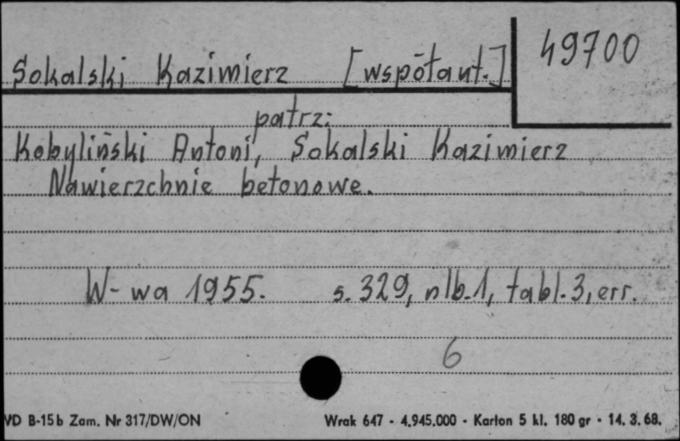 Sokalski Kazimierz [współaut.] 49700
patrz:
Kobyliński Antoni, Sokalski Kazimierz
Nawierzchnie betonowe.
W-wa 1955. s. 329, nlb. 1, tabl. 3, err.
6
VD B-15b Zam. Nr 317/DW/ON Wrak 647 - 4.945.000 - Karton 5 kl. 180 gr - 14. 3. 68.